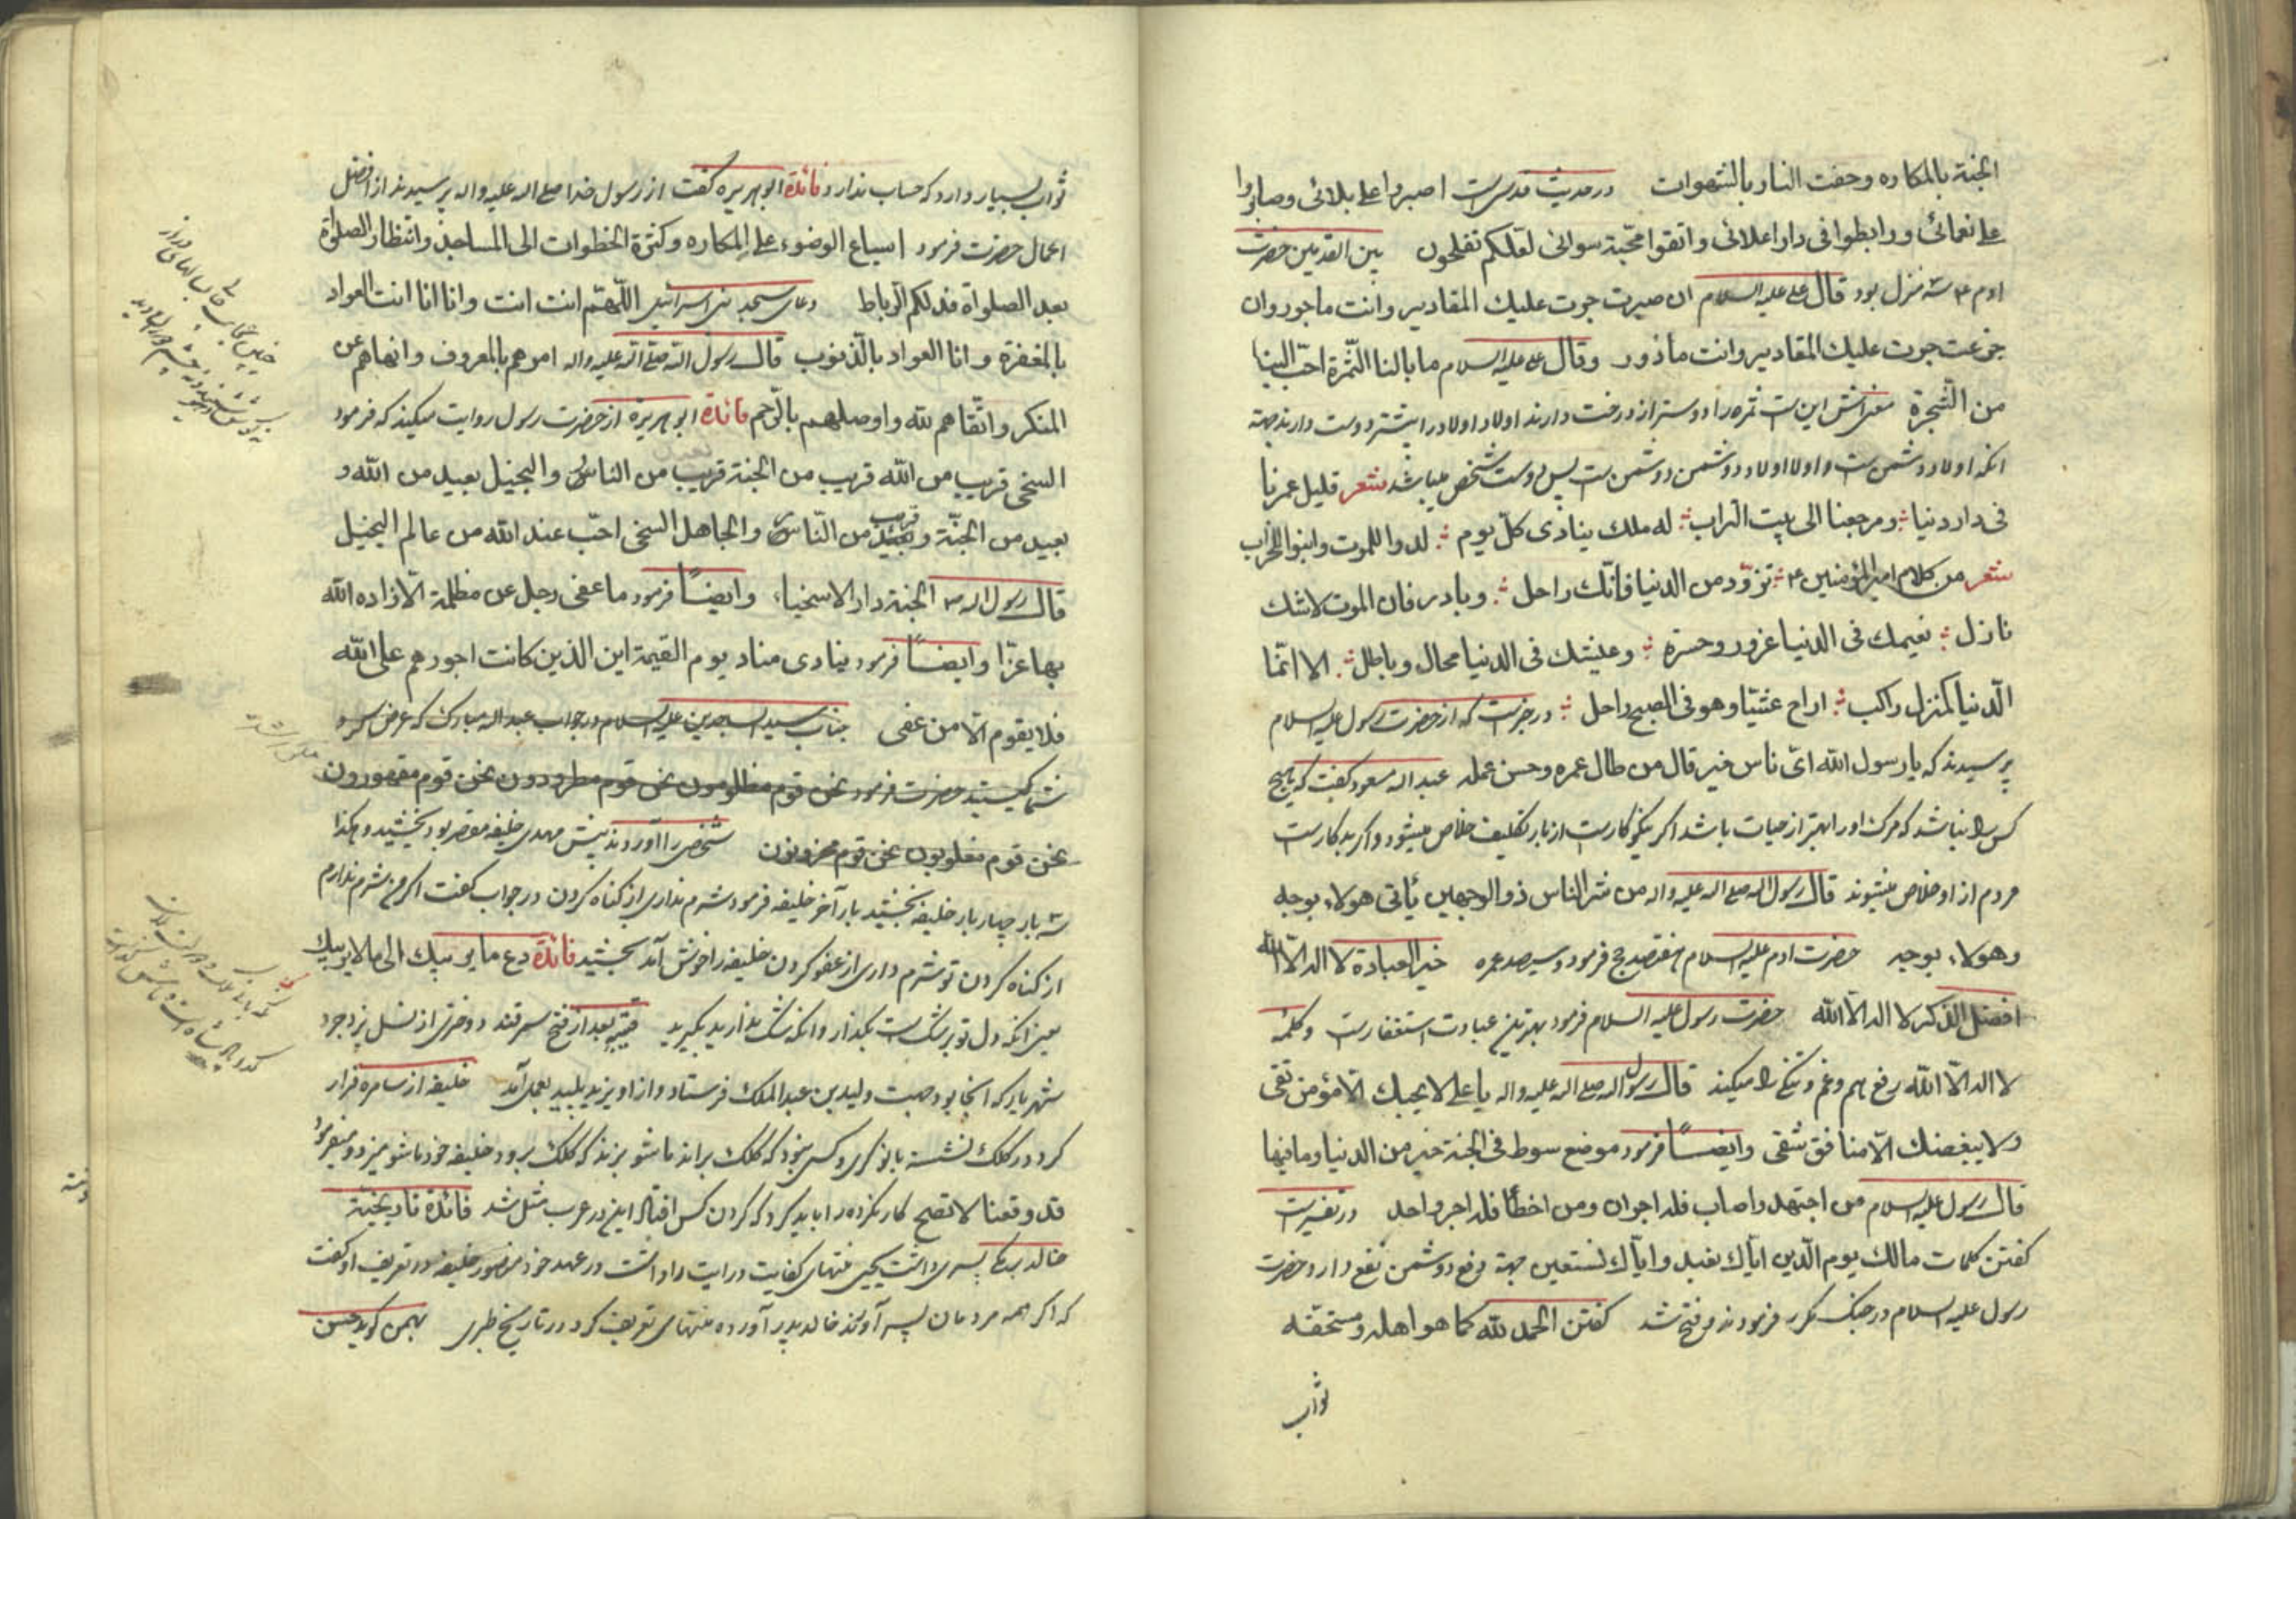 الجنة بالمكاره وحفت النار بالشهوات در حديث قدسى است اصبروا على بلائى وصابروا
على نعمائى ورابطوا فى دار اعلائى واتقوا محبة سوائى لعلكم تفلحون بين القدمين حضرت
ادم ع سه منزل بود قال على عليه السلام ان صبرت جرت عليك المقادير وانت ماجور وان
جزعت جرت عليك المقادير وانت ماذور وقال على عليه السلام ما بالنا الثمرة احب الينا
من الشجرة معنى اش اين است ثمره را دوستر از درخت دارند اولاد اولاد را بيشتر دوست دارند جهة
انكه اولاد دشمن است و اولاد اولاد دشمن دشمن است پس دوست شخص ميباشد شعر قليل عمرنا
فى دار دنيا ومرجعنا الى بيت التراب له ملك ينادى كل يوم لدوا للموت وابنوا للخراب
شعر من كلام امير المؤمنين ع تزود من الدنيا فانك راحل وبادر فان الموت لاشك
نازل نعيمك فى الدنيا غرور وحسرة وعيشك فى الدنيا محال وباطل الا انما
الدنيا كمنزل راكب اراح عشيا وهو فى الصبح راحل در خبر است كه از حضرت رسول عليه السلام
پرسيدند كه يا رسول الله اى ناس خير قال من طال عمره وحسن عمله عبد اله مسعود كفت كه هيچ
كس را نباشد كه مرك او را بهتر از حيات باشد اكر نيكو كار است از بار تكليف خلاص ميشود و اكر بد كار است
مردم از او خلاص ميشوند قال رسول اله صلى اله عليه واله من شر الناس ذو الوجهين يأتى هولاء بوجه
وهولاء بوجه حضرت ادم عليه السلام هفتصد حج فرمود و سيصد عمره خير العبادة لا اله الا الله
افضل الذكر لا اله الا الله حضرت رسول عليه السلام فرمود بهترين عبادت استغفار است و كلمه
لا اله الا الله رفع هم و غم و تنكى را ميكند قال رسول اله صلى اله عليه واله يا على لا يحبك الا مؤمن تقى
ولا يبغضك الا منافق شقى وايضا فرمود موضع سوط فى الجنة خير من الدنيا وما فيها
قال رسول عليه السلام من اجتهد واصاب فله اجران ومن اخطأ فله اجر واحد در تفسير است
كفتن كلمات مالك يوم الدين اياك نعبد واياك نستعين جهة دفع دشمن نفع دارد حضرت
رسول عليه السلام در جنك مكرر فرمودند و فتح شد كفتن الحمد لله كما هو اهله ومستحقه
ثواب
ثواب بسيار دارد كه حساب ندارد فائدة ابو هريره كفت از رسول خدا صلى اله عليه واله پرسيدند از افضل
اعمال حضرت فرمود اسباغ الوضوء على المكاره وكثرة الخطوات الى المساجد وانتظار الصلوة
بعد الصلواة فذلكم الرباط دعاى مسجد بنى اسرائيل اللهم انت انت وانا انا انت العواد
بالمغفرة وانا العواد بالذنوب قال رسول الله صلى اله عليه واله امرهم بالمعروف وانهاهم عن
المنكر واتقاهم لله واوصلهم بالرحم فائدة ابو هريرة از حضرت رسول روايت ميكند كه فرمود
السخى قريب من الله قريب من الجنة قريب من الناس والبخيل بعيد من الله و
بعيد من الجنة وبعيد من الناس والجاهل السخى احب عند الله من عالم البخيل
قال رسول اله ص الجنة دار الاسخياء وايضا فرمود ما عفى رجل عن مظلمة الا زاده الله
بها عزا وايضا فرمود ينادى مناد يوم القيمة اين الذين كانت اجورهم على الله
فلا يقوم الا من عفى جناب سيد الساجدين عليه السلام در جواب عبد اله مبارك كه عرض كرد
شما كيستيد حضرت فرمود نحن قوم مظلومون نحن قوم مطرودون نحن قوم مقهورون
نحن قوم مغلوبون نحن قوم محزونون شخصى را آوردند پيش مهدى خليفه مقصر بود بخشيد و هكذا
سه بار چهار بار خليفه بخشيد بار آخر خليفه فرمود شرم ندارى از كناه كردن در جواب كفت اكر من شرم ندارم
از كناه كردن تو شرم دارى از عفو كردن خليفه را خوش آمد بخشيد فائدة دع ما يريبك الى ما لا يريبك
يعنى انكه دل تو بر شك است بكذار وانكه شك نداريد بكيريد قتيبه بعد از فتح سمرقند دخترى از نسل يزدجرد
شهريار كه انجا بود جهت وليد بن عبد الملك فرستاد و از او يزيد پليد بعمل آمد خليفه از سامره فرار
كرد در كلك نشسته با نوكرى و كسى نبود كه كلك براند ماشو بزند كه كلك برود خليفه خود ماشو ميزد و ميفرمود
قد وقعنا لا تصح كار نكرده را بايد كرد كه كردن كس افتاد اين در عرب مثل شد فائدة تاريخية
خالد برمكى پسرى داشت يحيى منتهاى كفايت درايت را داشت در عهد خود منصور خليفه در تعريف او كفت
كه اكر همه مردمان پسر آورند خالد پدر آورده منتهاى تعريف كرد در تاريخ طبرى بهمن كويد حسن